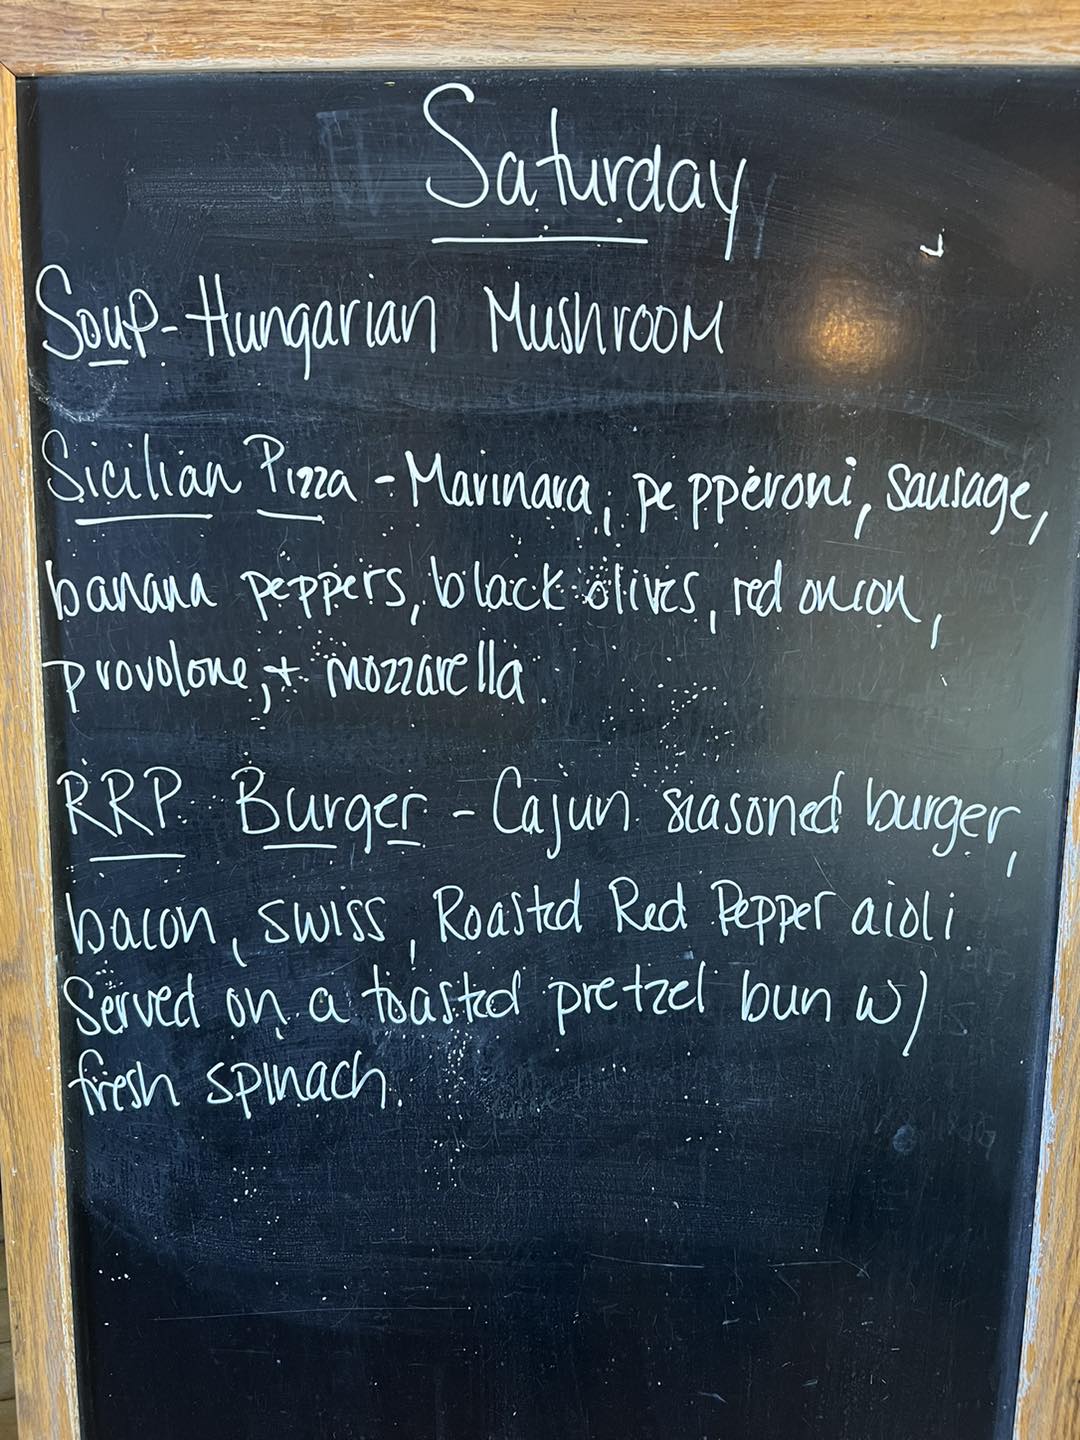 Saturday
Soup - Hungarian Mushroom
Sicilian Pizza - Marinara, pepperoni, sausage,
banana peppers, black olives, red onion,
provolone, + mozzarella.
RRP Burger - Cajun seasoned burger,
bacon, swiss, Roasted Red Pepper aioli.
Served on a toasted pretzel bun w/
fresh spinach.